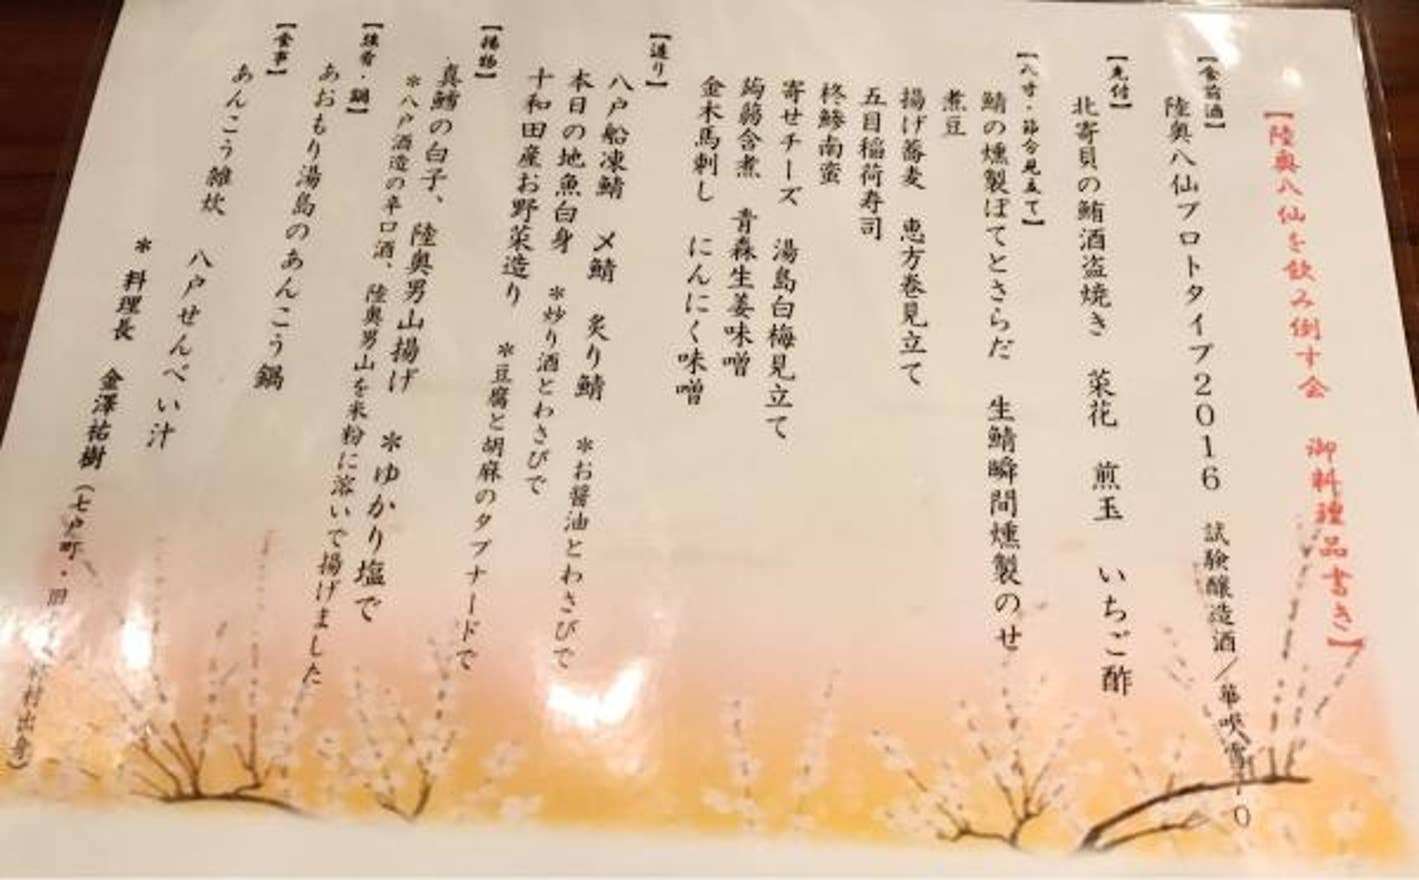 【陸奥八仙を飲み倒す会　御料理品書き】
【食前酒】
陸奥八仙プロトタイプ2016　試験醸造酒／華吹雪
【先付】
北寄貝の鮪酒盗焼き　菜花　煎玉　いちご酢
【八寸・節分見立て】
鯖の燻製ぽてとさらだ　生鯖瞬間燻製のせ
煮豆
揚げ蕎麦　恵方巻見立て
五目稲荷寿司
柊鯵南蛮
寄せチーズ　湯島白梅見立て
蒟蒻含煮　青森生姜味噌
金木馬刺し　にんにく味噌
【造り】
八戸船凍鯖　〆鯖　炙り鯖　＊お醤油とわさびで
本日の地魚白身　＊炒り酒とわさびで
十和田産お野菜造り　＊豆腐と胡麻のタプナードで
【揚物】
真鱈の白子、陸奥男山揚げ　＊ゆかり塩で
＊八戸酒造の辛口酒、陸奥男山を米粉に溶いて揚げました
【強肴・鍋】
あおもり湯島のあんこう鍋
【食事】
あんこう雑炊　八戸せんべい汁
＊料理長　金澤祐樹（七戸町・旧 村出身）